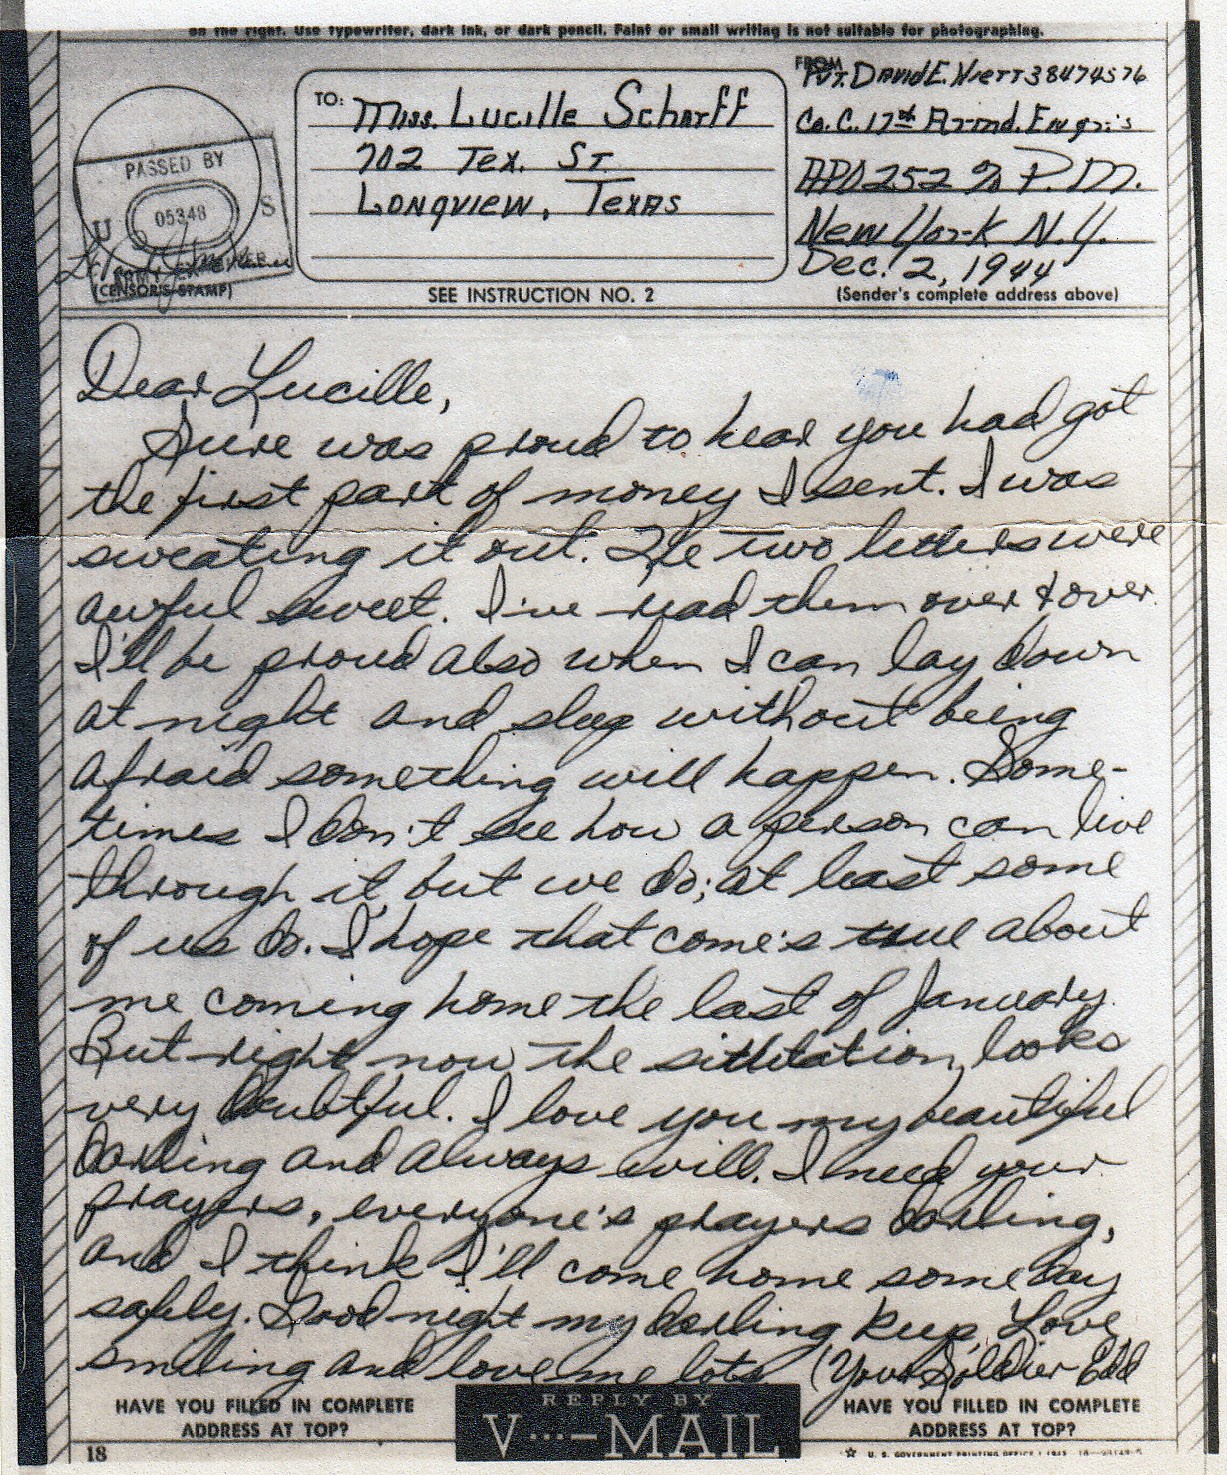 on the right. Use typewriter, dark ink, or dark pencil. Faint or small writing is not suitable for photographing.
FROM
PVT. DAVID E. HIETT 38474576
TO: Miss. Lucille Scharff
Co. C. 17th Armd. Engr's
702 Tex. St.
APO 252 % P.M.
Longview, Texas
New York N.Y.
Dec. 2, 1944
PASSED BY
U S
05348
ARMY EXAMINER
(CENSOR'S STAMP)
SEE INSTRUCTION NO. 2
(Sender's complete address above)
Dear Lucille,
Sure was proud to hear you had got
the first part of money I sent. I was
sweating it out. The two letters were
awful sweet. I've read them over & over
I'll be proud also when I can lay down
at night and sleep without being
afraid something will happen. Some-
times I don't see how a person can live
through it, but we do; at least some
of us do. I hope that come's true about
me coming home the last of January.
But right now the situtation looks
very doubtful. I love you my beautiful
darling and always will. I need your
prayers, everyone's prayers darling,
and I think I'll come home some day
safely. Good night my darling keep Love,
smiling and love me lots (Your Soldier Edd
HAVE YOU FILLED IN COMPLETE
ADDRESS AT TOP?
REPLY BY
V···—MAIL
HAVE YOU FILLED IN COMPLETE
ADDRESS AT TOP?
18
☆ U. S. GOVERNMENT PRINTING OFFICE : 1943